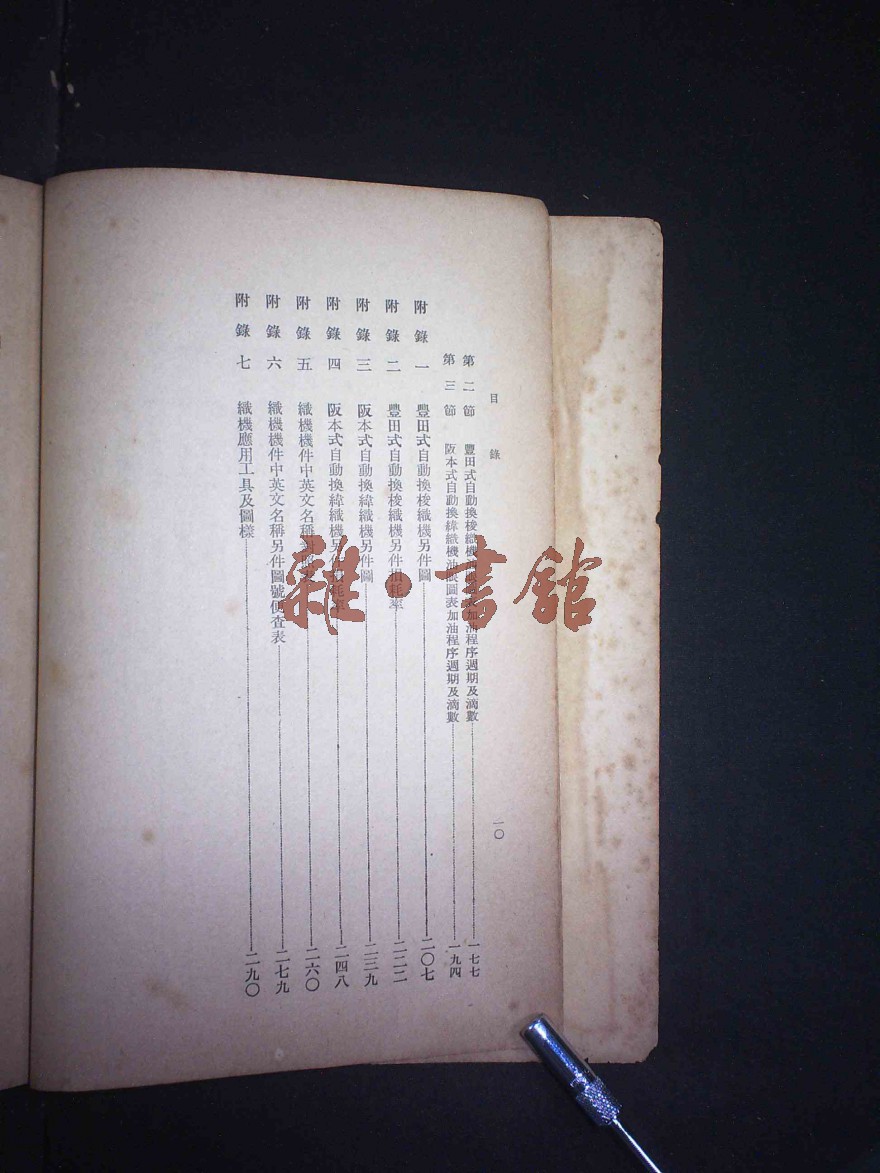 目錄
一〇
第二節 豐田式自動換梭織機油眼圖表加油程序週期及滴數 一七七
第三節 阪本式自動換緯織機油眼圖表加油程序週期及滴數 一九四
附錄一 豐田式自動換梭織機另件圖 二〇七
附錄二 豐田式自動換梭織機另件損耗率 二二二
附錄三 阪本式自動換緯織機另件圖 二三九
附錄四 阪本式自動換緯織機另件損耗率 二四八
附錄五 織機機件中英文名稱 二六〇
附錄六 織機機件中英文名稱另件圖號便查表 二七九
附錄七 織機應用工具及圖樣 二九〇
雜·書館